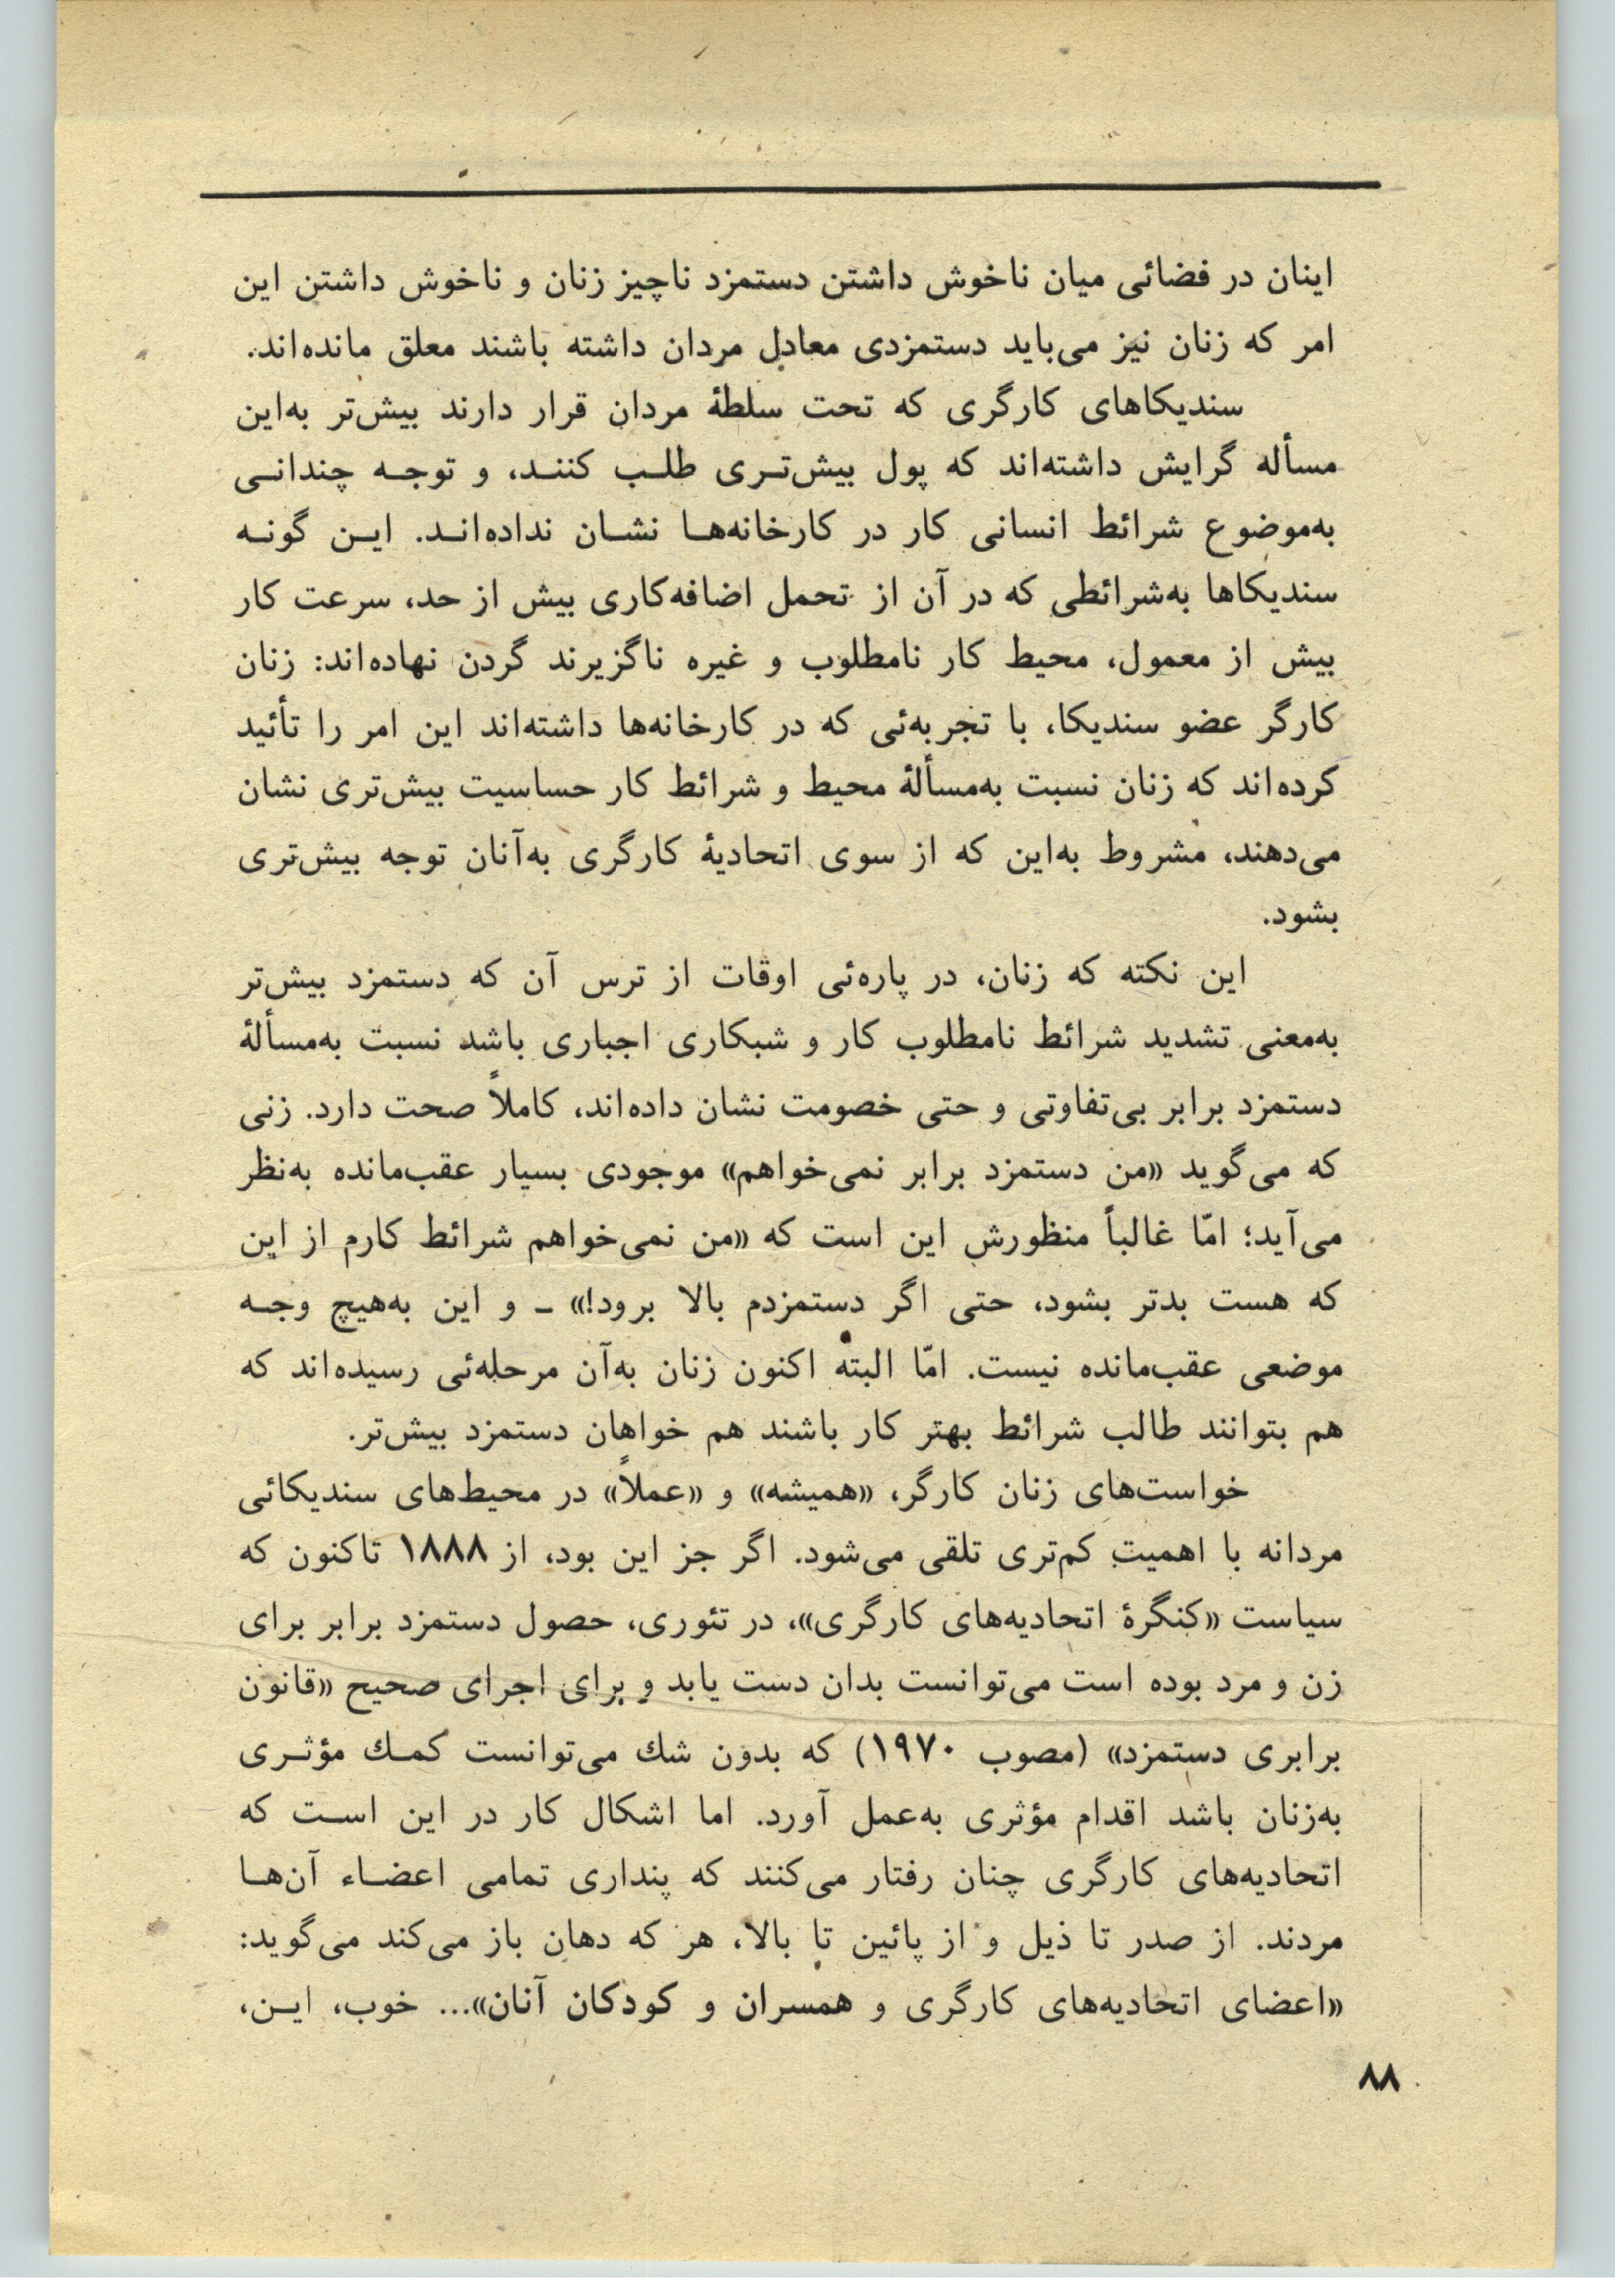 اینان در فضائی میان ناخوش داشتن دستمزد ناچیز زنان و ناخوش داشتن این
امر که زنان نیز می‌باید دستمزدی معادل مردان داشته باشند معلق مانده‌اند.
سندیکاهای کارگری که تحت سلطهٔ مردان قرار دارند بیش‌تر به‌این
مسأله گرایش داشته‌اند که پول بیش‌تـری طلـب کننـد، و توجـه چندانـی
به‌موضوع شرائط انسانی کار در کارخانه‌هـا نشـان نداده‌انـد. ایـن گونـه
سندیکاها به‌شرائطی که در آن از تحمل اضافه‌کاری بیش از حد، سرعت کار
بیش از معمول، محیط کار نامطلوب و غیره ناگزیرند گردن نهاده‌اند: زنان
کارگر عضو سندیکا، با تجربه‌ئی که در کارخانه‌ها داشته‌اند این امر را تأئید
کرده‌اند که زنان نسبت به‌مسألهٔ محیط و شرائط کار حساسیت بیش‌تری نشان
می‌دهند، مشروط به‌این که از سوی اتحادیهٔ کارگری به‌آنان توجه بیش‌تری
بشود.
این نکته که زنان، در پاره‌ئی اوقات از ترس آن که دستمزد بیش‌تر
به‌معنی تشدید شرائط نامطلوب کار و شبکاری اجباری باشد نسبت به‌مسألهٔ
دستمزد برابر بی‌تفاوتی و حتی خصومت نشان داده‌اند، کاملاً صحت دارد. زنی
که می‌گوید «من دستمزد برابر نمی‌خواهم» موجودی بسیار عقب‌مانده به‌نظر
می‌آید؛ امّا غالباً منظورش این است که «من نمی‌خواهم شرائط کارم از این
که هست بدتر بشود، حتی اگر دستمزدم بالا برود!» ـ و این به‌هیچ وجـه
موضعی عقب‌مانده نیست. امّا البته اکنون زنان به‌آن مرحله‌ئی رسیده‌اند که
هم بتوانند طالب شرائط بهتر کار باشند هم خواهان دستمزد بیش‌تر.
خواست‌های زنان کارگر، «همیشه» و «عملاً» در محیط‌های سندیکائی
مردانه با اهمیتِ کم‌تری تلقی می‌شود. اگر جز این بود، از ۱۸۸۸ تاکنون که
سیاست «کنگرهٔ اتحادیه‌های کارگری»، در تئوری، حصول دستمزد برابر برای
زن و مرد بوده است می‌توانست بدان دست یابد و برای اجرای صحیح «قانون
برابری دستمزد» (مصوب ۱۹۷۰) که بدون شك می‌توانست کمـك مؤثـری
به‌زنان باشد اقدام مؤثری به‌عمل آورد. اما اشکال کار در این اسـت که
اتحادیه‌های کارگری چنان رفتار می‌کنند که پنداری تمامی اعضـاء آن‌هـا
مردند. از صدر تا ذیل و از پائین تا بالا، هر که دهان باز می‌کند می‌گوید:
«اعضای اتحادیه‌های کارگری و همسران و کودکان آنان»... خوب، ایـن،
۸۸